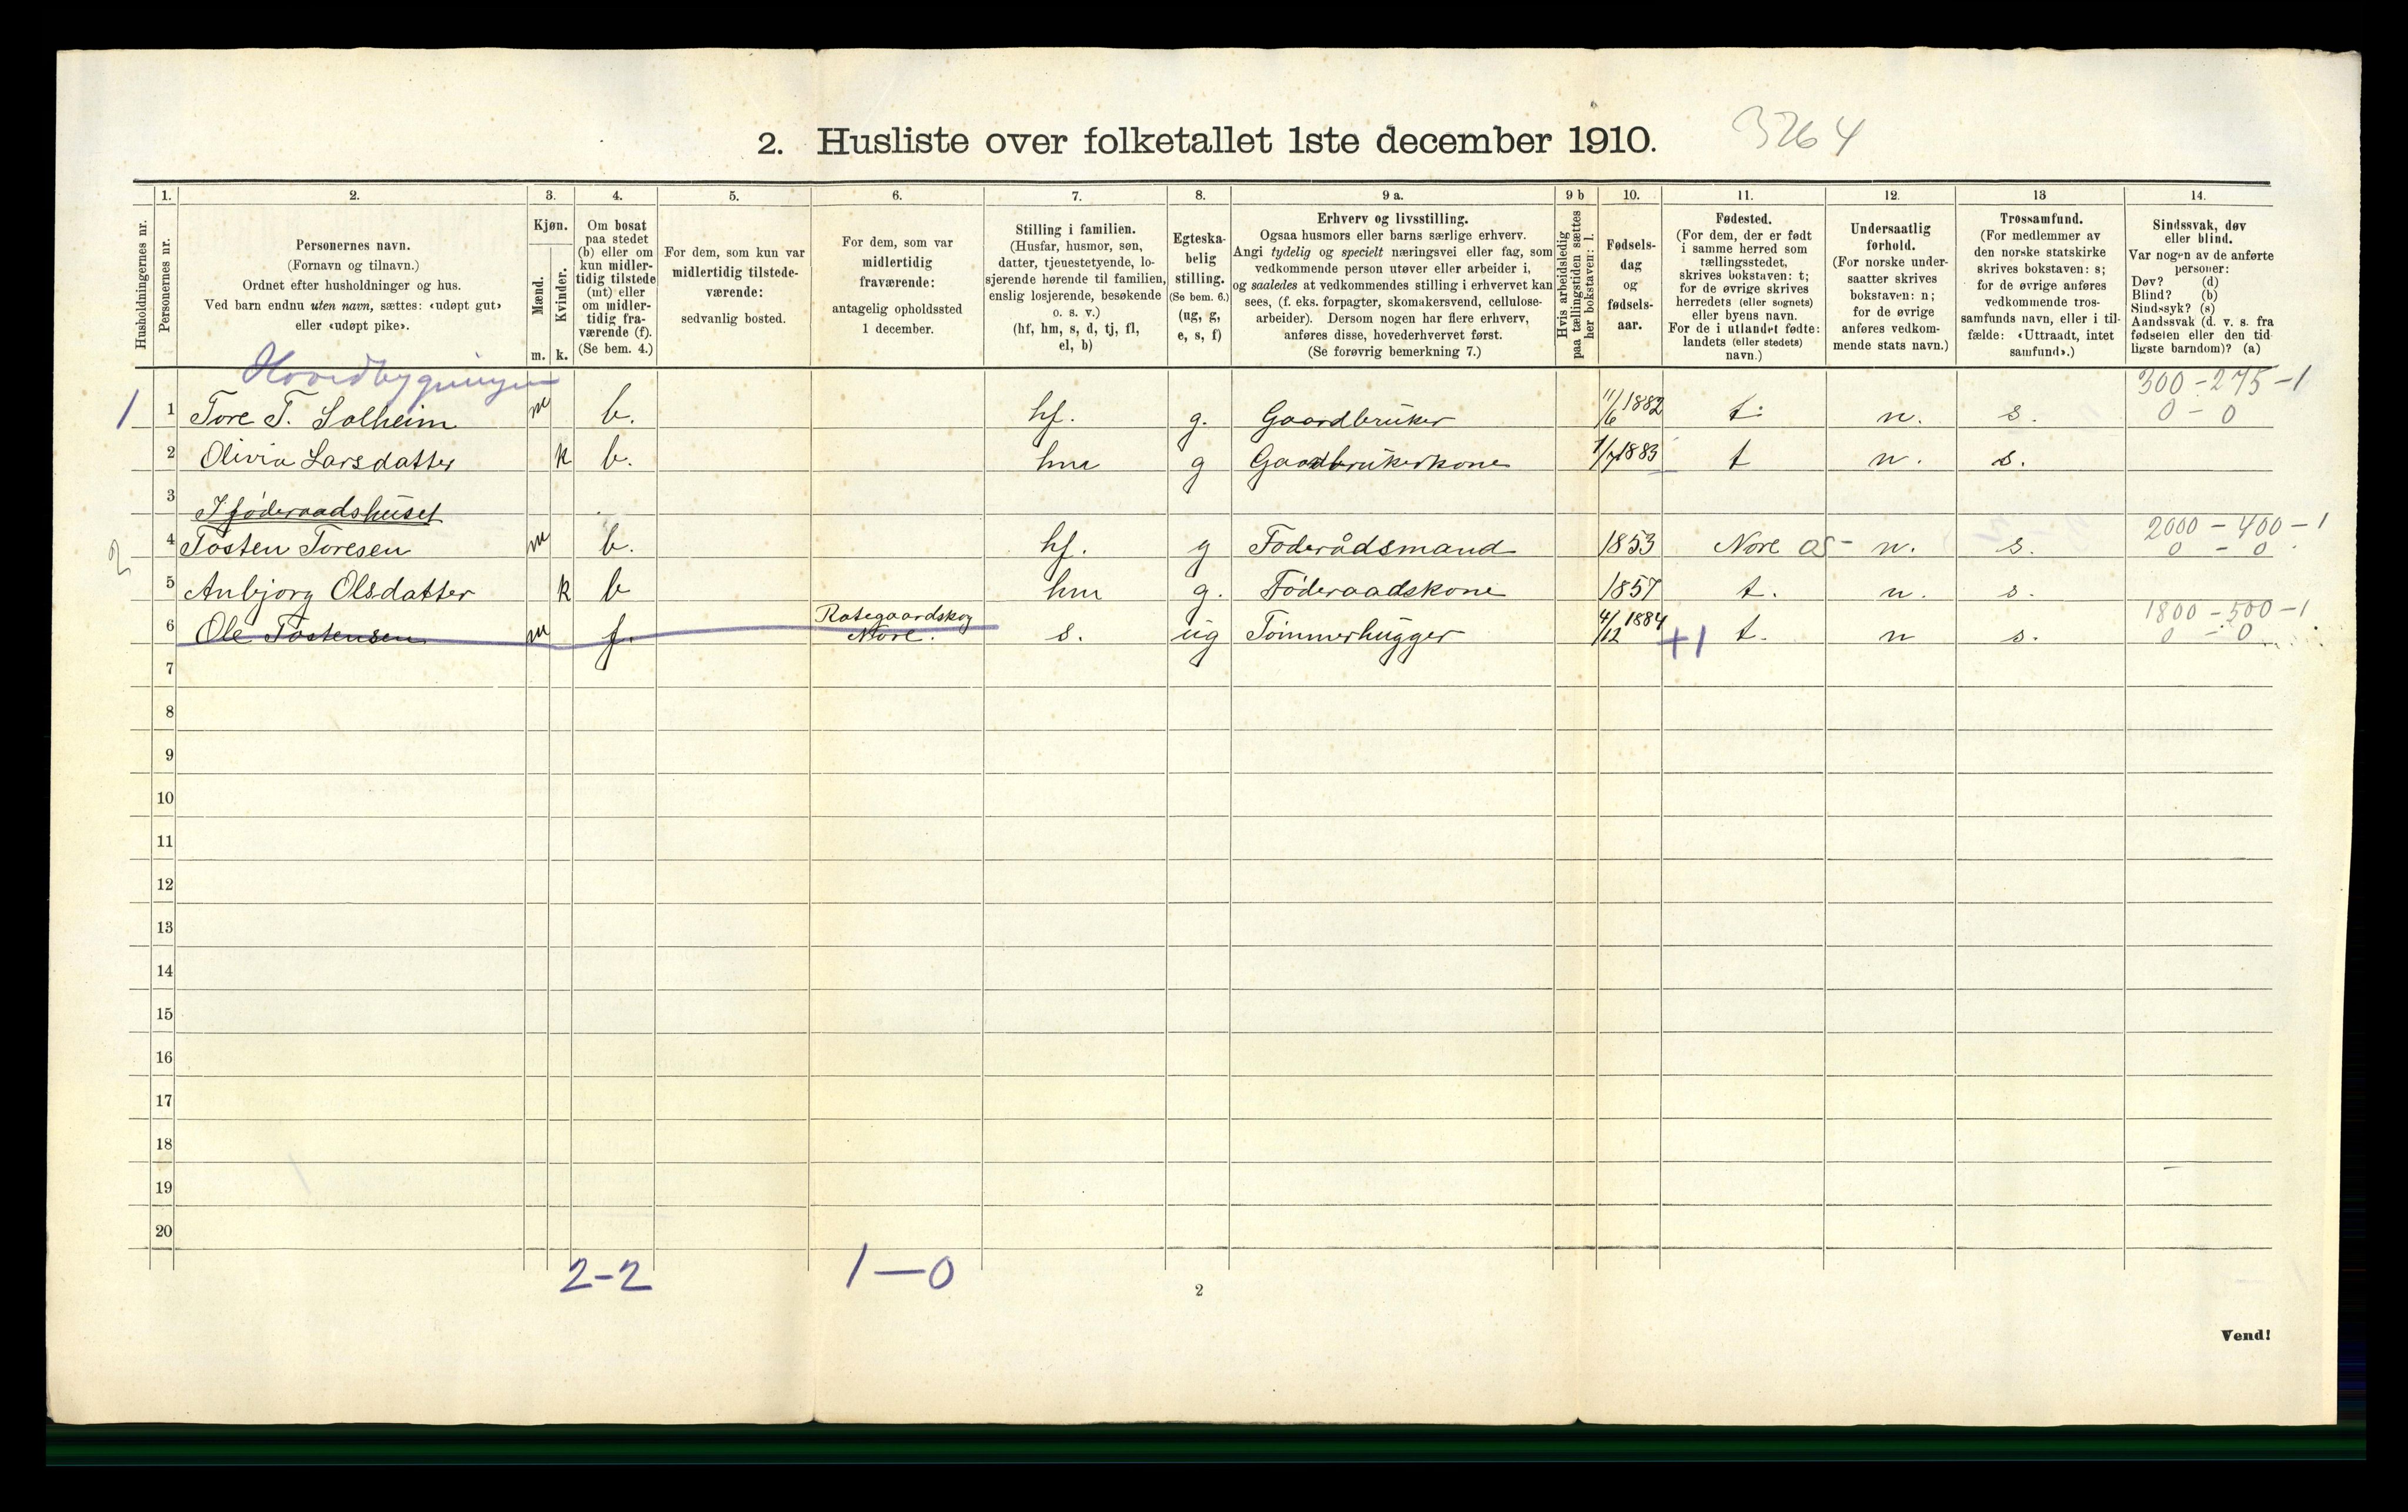 2. Husliste over folketallet 1ste december 1910. 3264
Husholdningernes nr.
1.
Personernes nr.
2.
Personernes navn.
(Fornavn og tilnavn.)
Ordnet efter husholdninger og hus.
Ved barn endnu uten navn, sættes: «udøpt gut»
eller «udøpt pike».
3.
Kjøn.
Mænd.
Kvinder.
m. k.
4.
Om bosat
paa stedet
(b) eller om
kun midler-
tidig tilstede
(mt) eller
om midler-
tidig fra-
værende (f).
(Se bem. 4.)
5.
For dem, som kun var
midlertidig tilstede-
værende:
sedvanlig bosted.
6.
For dem, som var
midlertidig
fraværende:
antagelig opholdssted
1 december.
7.
Stilling i familien.
(Husfar, husmor, søn,
datter, tjenestetyende, lo-
sjerende hørende til familien,
enslig losjerende, besøkende
o. s. v.)
(hf, hm, s, d, tj, fl,
el, b)
8.
Egteska-
belig
stilling.
(Se bem. 6.)
(ug, g,
e, s, f)
9 a.
Erhverv og livsstilling.
Ogsaa husmors eller barns særlige erhverv.
Angi tydelig og specielt næringsvei eller fag, som
vedkommende person utøver eller arbeider i,
og saaledes at vedkommendes stilling i erhvervet kan
sees, (f. eks. forpagter, skomakersvend, cellulose-
arbeider). Dersom nogen har flere erhverv,
anføres disse, hovederhvervet først.
(Se forøvrig bemerkning 7.)
9 b
Hvis arbeidsledig
paa tællingstiden sættes
her bokstaven: l.
10.
Fødsels-
dag
og
fødsels-
aar.
11.
Fødested.
(For dem, der er født
i samme herred som
tællingsstedet,
skrives bokstaven: t;
for de øvrige skrives
herredets (eller sognets)
eller byens navn.
For de i utlandet fødte:
landets (eller stedets)
navn.)
12.
Undersaatlig
forhold.
(For norske under-
saatter skrives
bokstaven: n;
for de øvrige
anføres vedkom-
mende stats navn.)
13
Trossamfund.
(For medlemmer av
den norske statskirke
skrives bokstaven: s;
for de øvrige anføres
vedkommende tros-
samfunds navn, eller i til-
fælde: «Uttraadt, intet
samfund».)
14.
Sindssvak, døv
eller blind.
Var nogen av de anførte
personer:
Døv? (d)
Blind? (b)
Sindssyk? (s)
Aandssvak (d. v. s. fra
fødselen eller den tid-
ligste barndom)? (a)
Hovedbygningen 300-275-1
1 1 Tore T. Solheim m b. hf. g. Gaardbruker 11/6 1882 t. n. s. 0-0
2 Olivia Larsdatter k b. hm g Gaardbrukerkone 1/7 1883 t n. s.
3 I føderaadshuset
2000-400-1
2 4 Tosten Toresen m b. hf. g Føderådsmand 1853 Nore 05- n. s. 0-0
5 Anbjørg Olsdatter k b hm g. Føderaadskone 1857 t. n. s.
Rotegaardskog 1800-500-1
6 Ole Tostensen m f. Nore. s. ug Tømmerhugger 4/12 1884 +1 t. n s. 0-0
7
8
9
10
11
12
13
14
15
16
17
18
19
20
2-2 1-0
2
Vend!